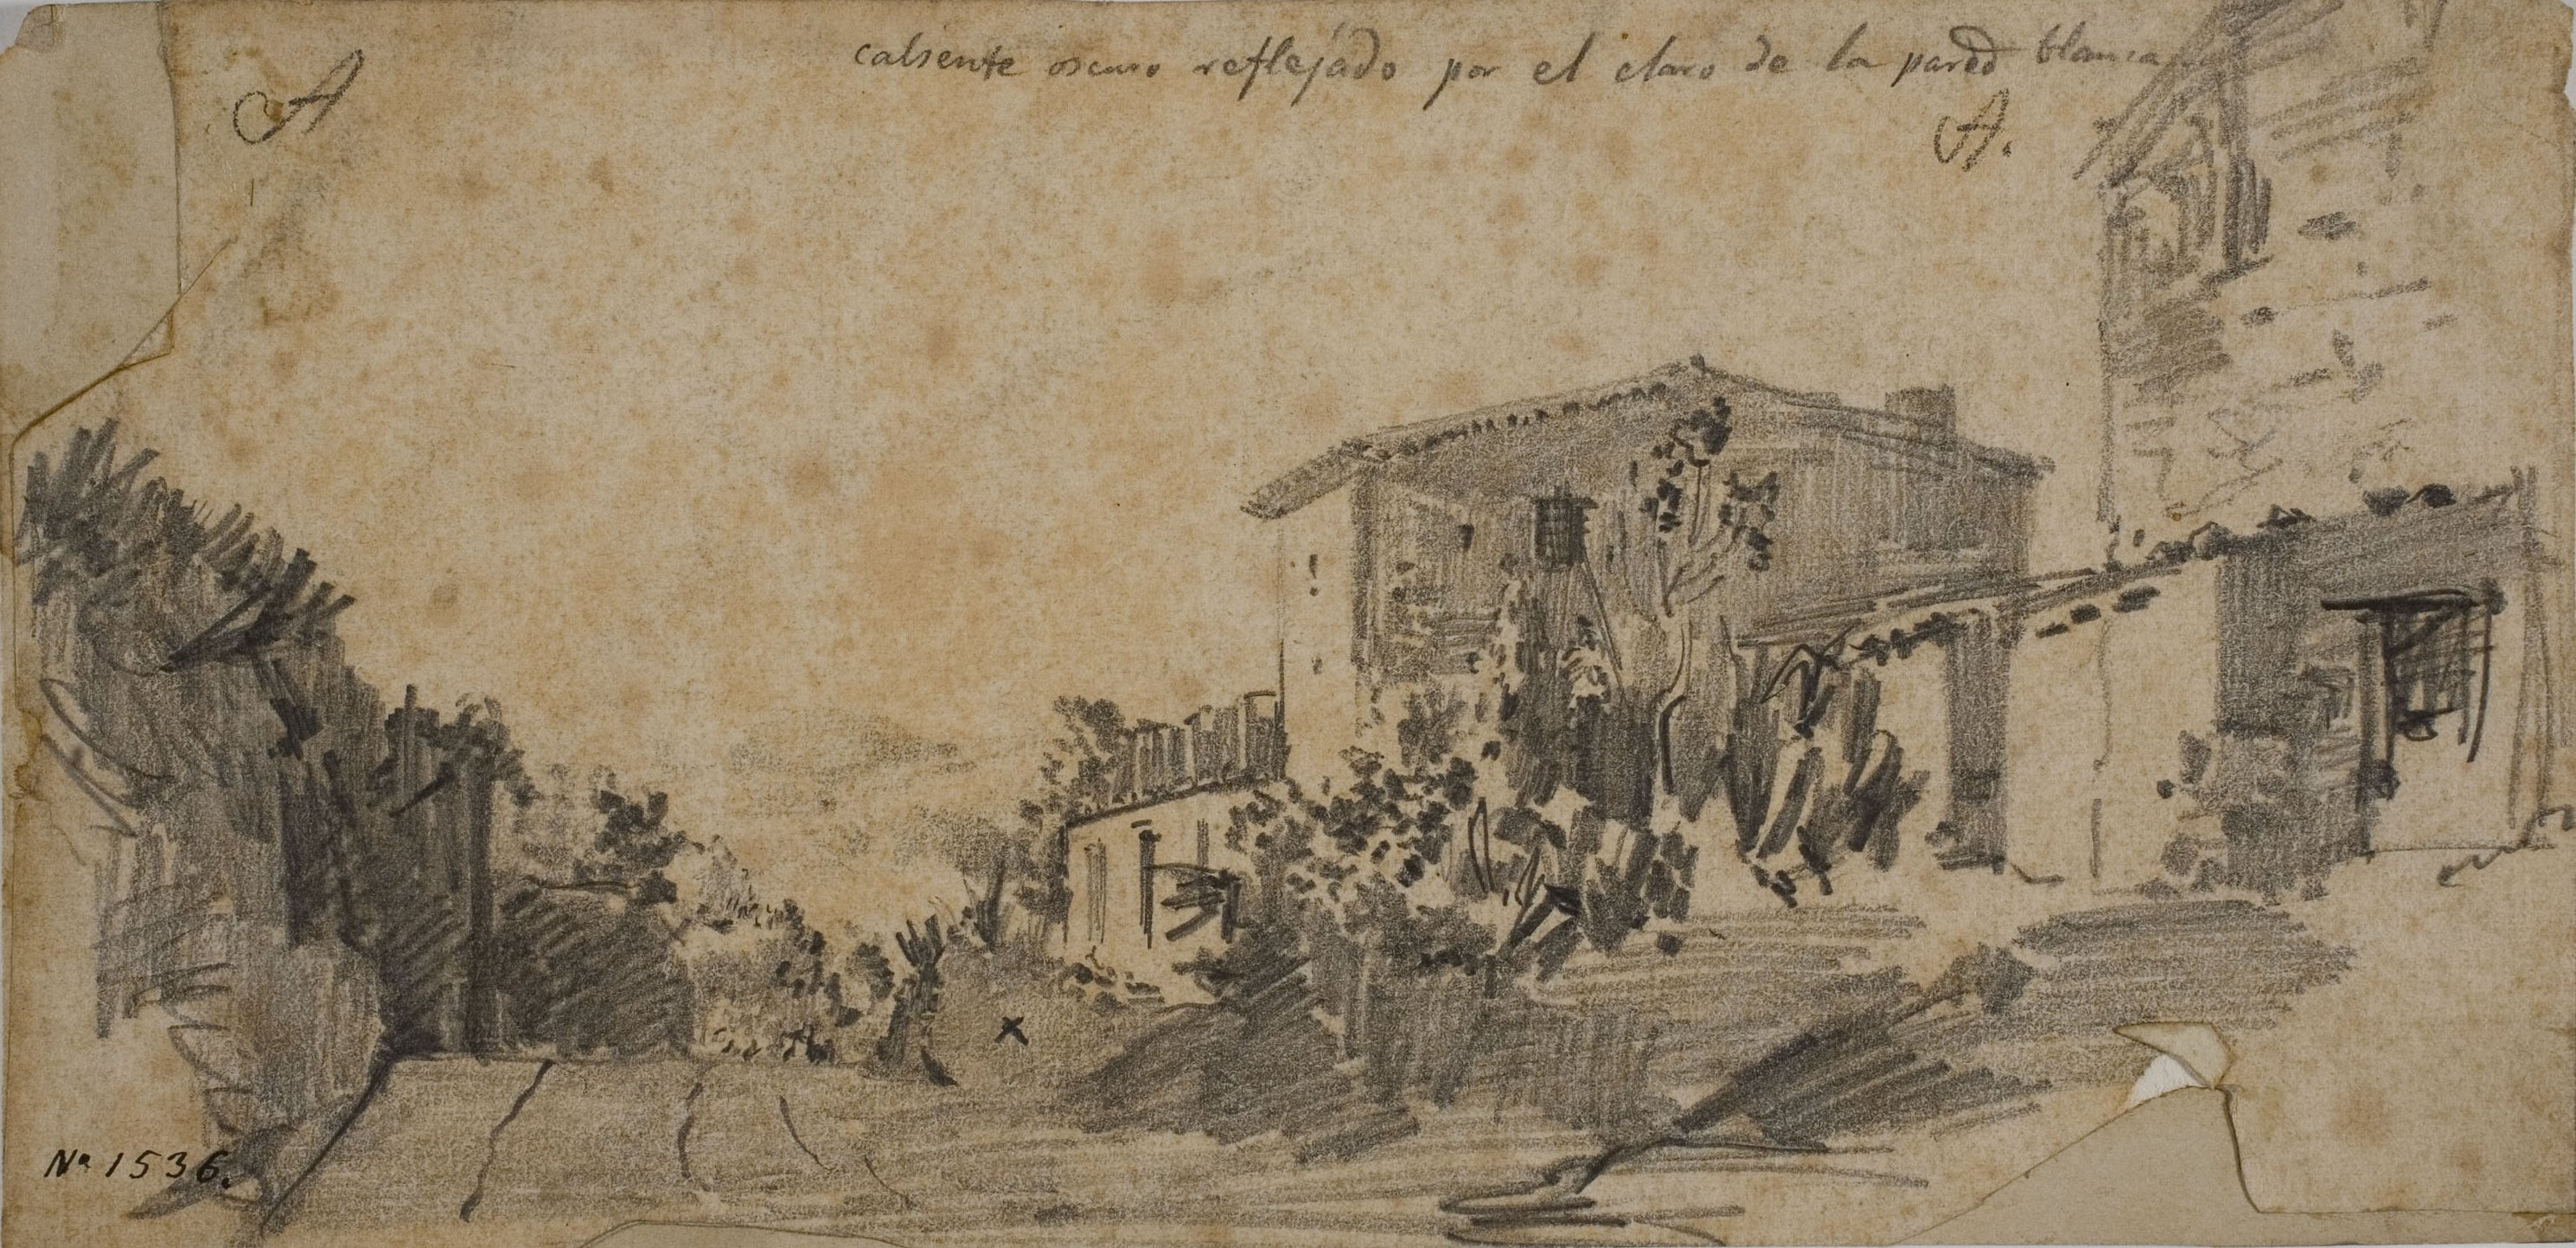 caliente oscuro reflejado por el claro de la pared blanca
A
A.
x
Nº 1536.